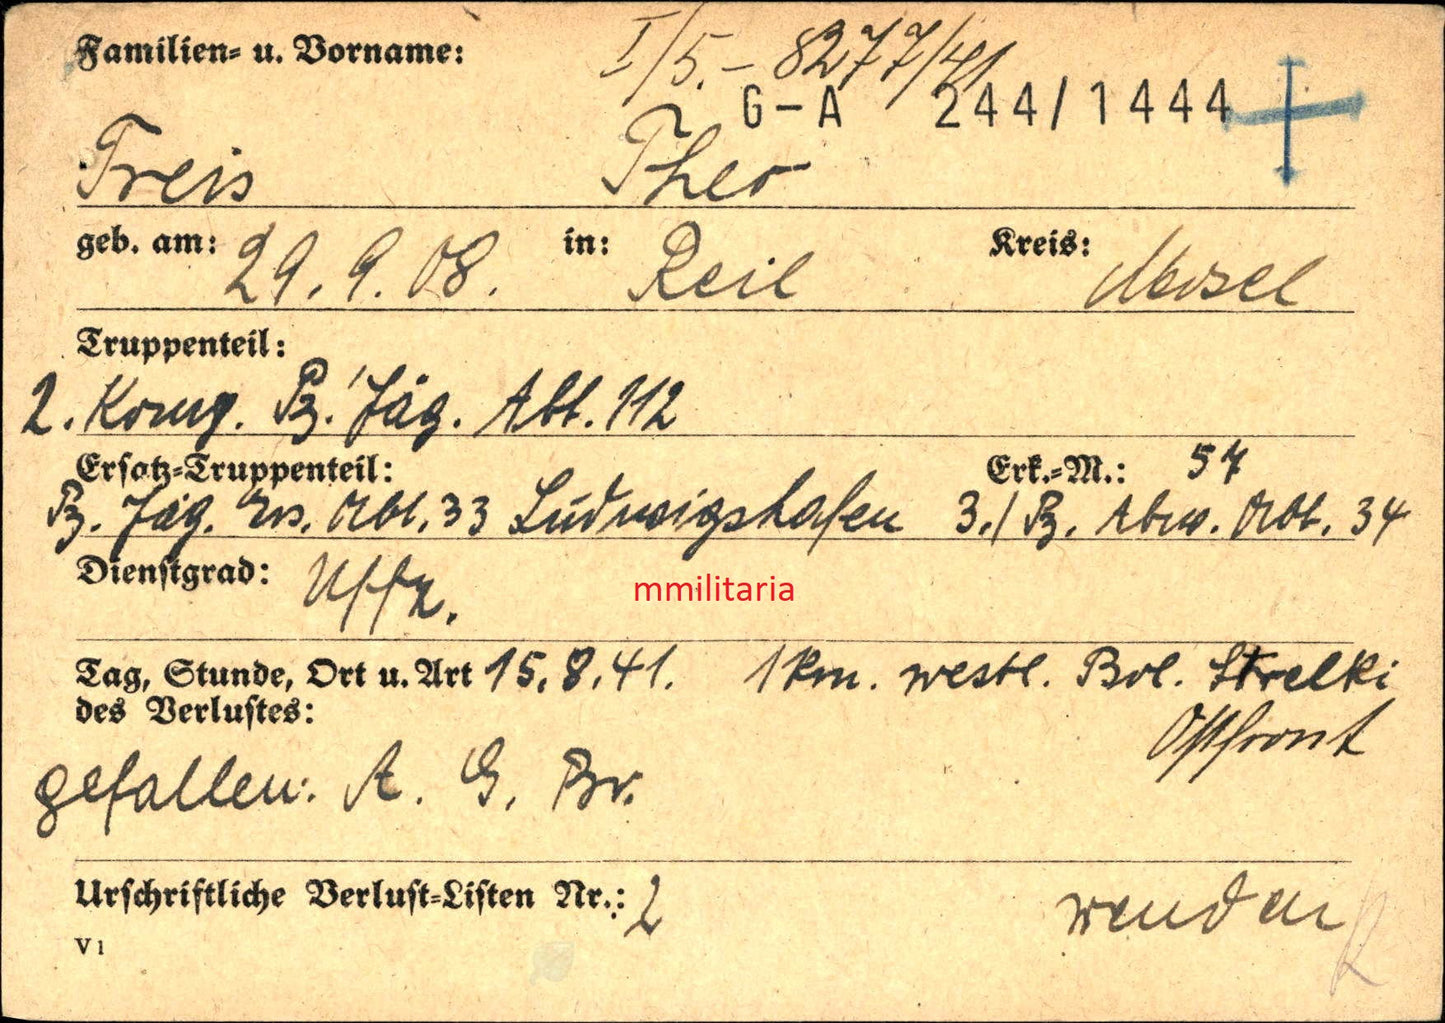 Familien- u. Vorname:
I/5.- 8277/41
G-A 244/1444
Freis Theo
geb. am: 29.9.08. in: Reil Kreis: Mosel
Truppenteil:
2. Komp. Pz. Jäg. Abt. 112
Ersatz-Truppenteil: Erk.-M.: 57
Pz. Jäg. Ers. Abt. 33 Ludwigshafen 3./Pz. Abw. Abt. 34
Dienstgrad: Uffz.
mmilitaria
Tag, Stunde, Ort u. Art 15.8.41. 1 km. westl. Bol. Strelki
des Verlustes: Ostfront
gefallen: A. G. Br.
Urschriftliche Verlust-Listen Nr.: 2 wenden
V 1